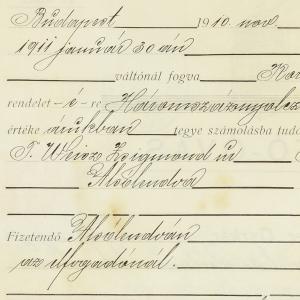 Budapest 1910. nov.
1911 január 30 án
váltónál fogva
rendelet -é- re Háromszáznyolcz
értéke árukban tegye számolásba tud
T. Weisz Zsigmond úr
Alsólendva
Fizetendő Alsólendván
az elfogadónál.